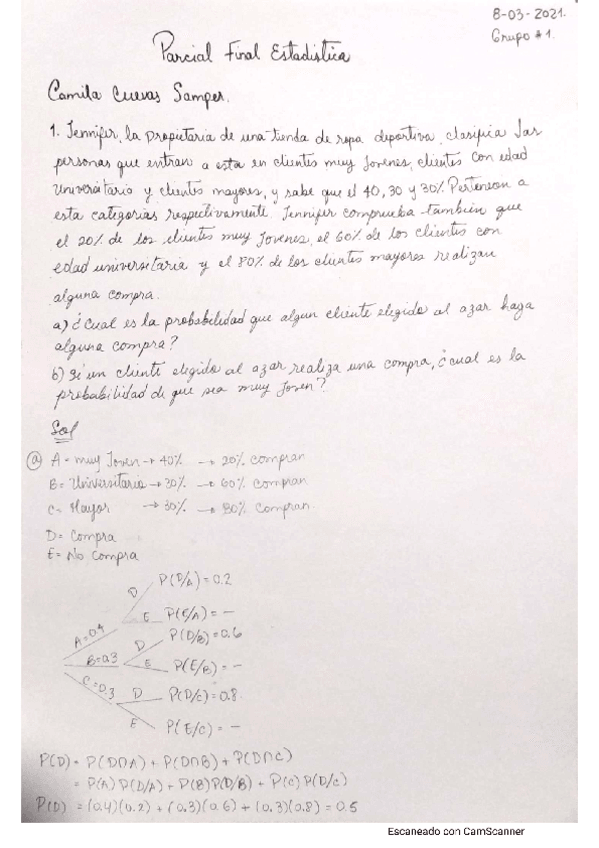 8-03-2021.
Grupo #1.
Parcial Final Estadistica
Camila Cuevas Samper.
1. Jennifer, la propietaria de una tienda de ropa deportiva, clasifica las
personas que entran a esta en clientes muy jovenes, clientes con edad
universitaria y clientes mayores, y sabe que el 40, 30 y 30% Pertenecen a
esta categorias respectivamente. Jennifer comprueba tambien que
el 20% de los clientes muy jovenes, el 60% de los clientes con
edad universitaria y el 80% de los clientes mayores realizan
alguna compra.
a) ¿Cual es la probabilidad que algun cliente elegido al azar haga
alguna compra?
b) Si un cliente elegido al azar realiza una compra, ¿cual es la
probabilidad de que sea muy joven?
Sol
a) A = muy Joven → 40% → 20% compran
B = Universitario → 30% → 60% compran
C = Mayor → 30% → 80% compran.
D = Compra
E = No Compra
D P(D/A) = 0.2
A = 0.4 E P(E/A) = -
D P(D/B) = 0.6
B = 0.3 E P(E/B) = -
C = 0.3 D P(D/C) = 0.8
E P(E/C) = -
P(D) = P(D∩A) + P(D∩B) + P(D∩C)
= P(A)P(D/A) + P(B)P(D/B) + P(C)P(D/C)
P(D) = (0.4)(0.2) + (0.3)(0.6) + (0.3)(0.8) = 0.5
Escaneado con CamScanner